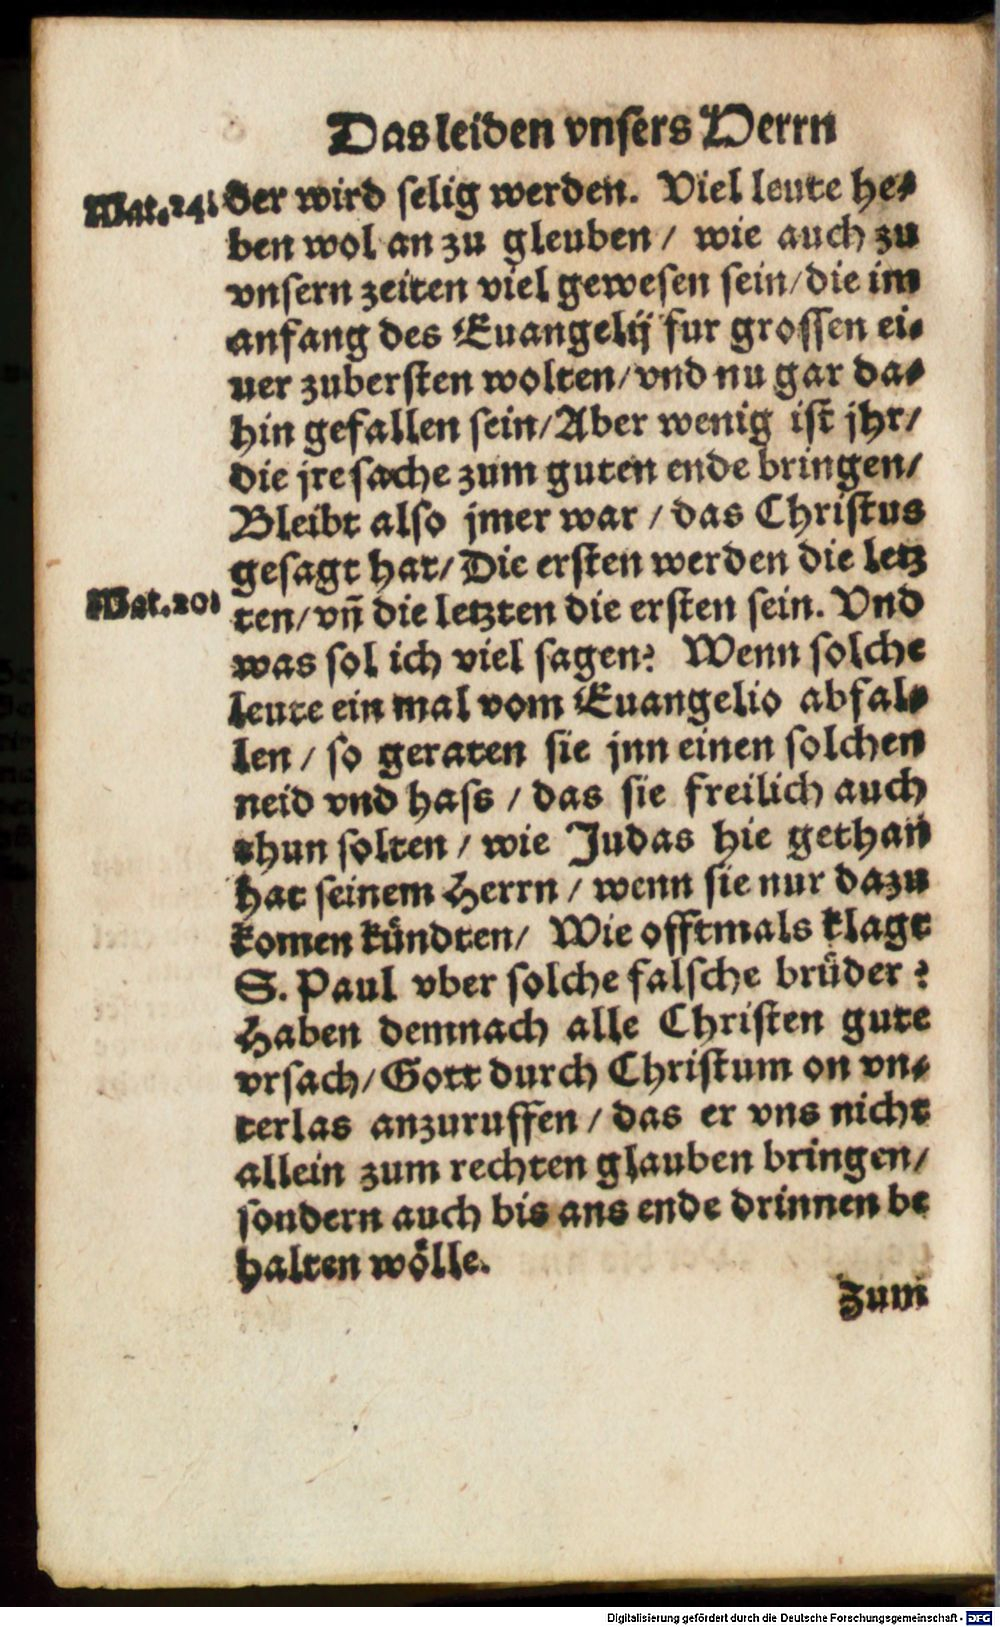 Das leiden vnsers Herrn
Mat. 24. der wird selig werden. Viel leute he-
ben wol an zu gleuben / wie auch zu
vnsern zeiten viel gewesen sein / die im
anfang des Euangelij fur grossen ei-
uer zubersten wolten / vnd nu gar da-
hin gefallen sein / Aber wenig ist jhr /
die jre sache zum guten ende bringen /
Bleibt also jmer war / das Christus
gesagt hat / Die ersten werden die letz
Mat. 20. ten / vn̄ die letzten die ersten sein. Vnd
was sol ich viel sagen? Wenn solche
leute ein mal vom Euangelio abfal-
len / so geraten sie jnn einen solchen
neid vnd hass / das sie freilich auch
thun solten / wie Judas hie gethan
hat seinem Herrn / wenn sie nur dazu
komen kündten / Wie offtmals klagt
S. Paul vber solche falsche brüder?
Haben demnach alle Christen gute
vrsach / Gott durch Christum on vn-
terlas anzuruffen / das er vns nicht
allein zum rechten glauben bringen /
sondern auch bis ans ende drinnen be
halten wölle.
Zum
Digitalisierung gefördert durch die Deutsche Forschungsgemeinschaft - DFG